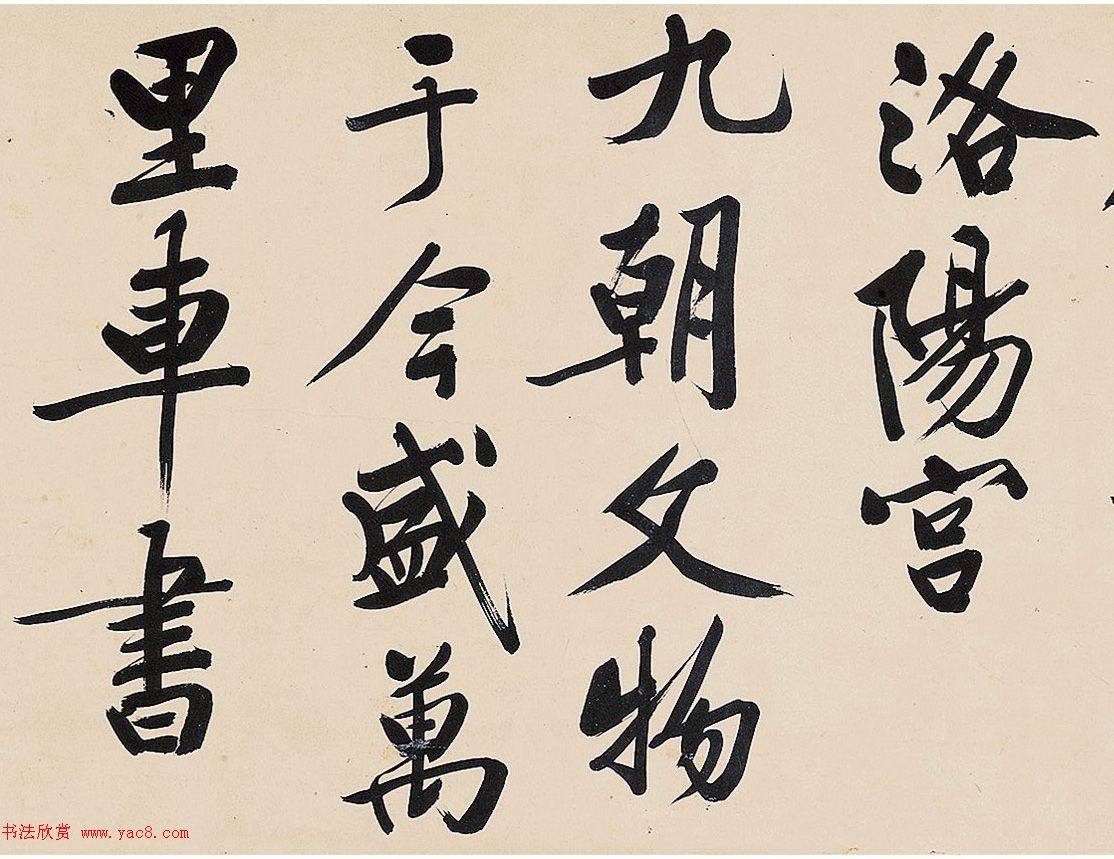 洛陽宮
九朝文物
于今盛萬
里車書
书法欣赏 www.yac8.com